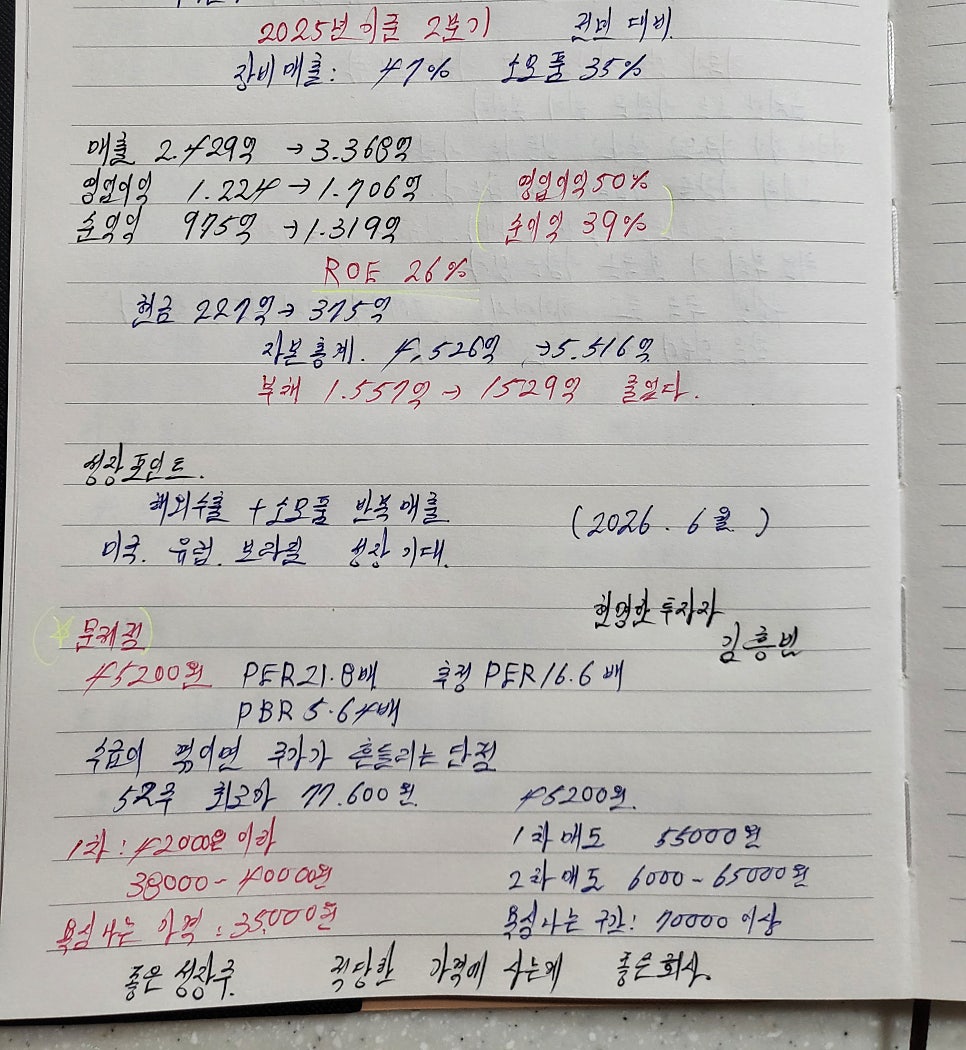 2025년 기준 2분기 전년 대비
장비매출: 47% 소모품 35%
매출 2.429억 → 3.368억
영업이익 1.224 → 1.706억 영업이익 50%
순익익 975억 → 1.319억 순이익 39%
ROE 26%
현금 227억 → 375억
자본총계. 4,526억 → 5.516억
부채 1.557억 → 1529억 줄었다.
성장포인트.
해외수출 + 소모품 반복매출
(2026. 6월)
미국. 유럽. 브라질 성장 기대.
현명한 투자자
김흥빈
☆ 문제점
45200원 PER 21.8배 추정 PER 16.6배
PBR 5.64배
수급이 꺾이면 주가가 흔들리는 단점
52주 최고가 77.600원 45200원.
1차: 42000원 이하 1차 매도 55000원
38000~40000원 2차 매도 6000~65000원
욕심나는 가격: 35,000원 욕심나는 구간: 70000 이상
좋은 성장주. 적당한 가격에 사는게 좋은회사.